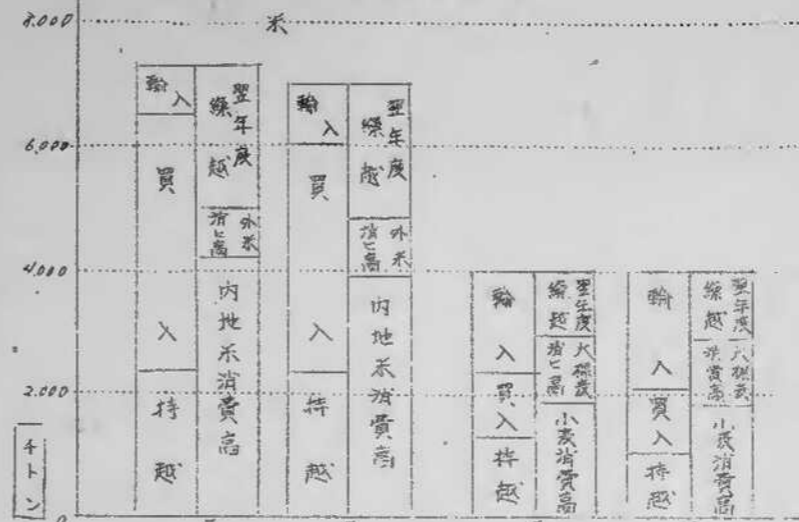 米
8.000
6.000
4.000
2.000
0
千トン
輸入
買入
持越
翌年度
繰越
外米
消ヒ高
内地米消費高
輸入
買入
持越
翌年度
繰越
外米
消ヒ高
内地米消費高
輸入
買入
持越
翌年度
繰越
大裸麦
消ヒ高
小麦消費高
輸入
買入
持越
翌年度
繰越
大裸麦
消費高
小麦消費高